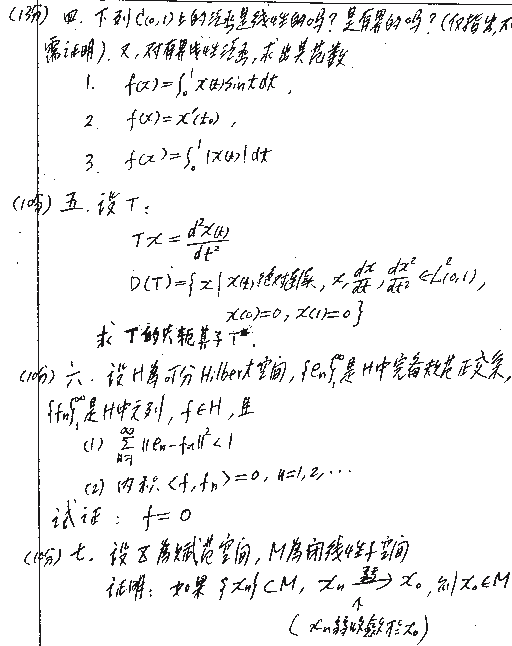 (13分) 四. 下列C(0,1)上的泛函是线性的吗? 是有界的吗? (仅指出,不
需证明). 又, 对有界线性泛函, 求出其范数.
1. f(x)=∫₀¹x(t)sintdt,
2. f(x)=x'(t₀),
3. f(x)=∫₀¹|x(t)|dt
(10分) 五. 设T:
Tx=d²x(t)/dt²
D(T)={x|x(t)绝对连续, x, dx/dt, dx²/dt²∈L²(0,1),
x(0)=0, x(1)=0}
求T的共轭算子T*.
(10分) 六. 设H为可分Hilbert空间, {en}₁^∞是H中完备规范正交系,
{fn}₁^∞是H中元列, f∈H, 且
(1) ∑_{n=1}^∞||en-fn||²<1
(2) 内积<f,fn>=0, n=1,2,⋯
试证: f=0
(10分) 七. 设X为赋范空间, M为闭线性子空间
证明: 如果{xn}⊂M, xn 弱→ x₀, 则x₀∈M
↑
(xn弱收敛于x₀)